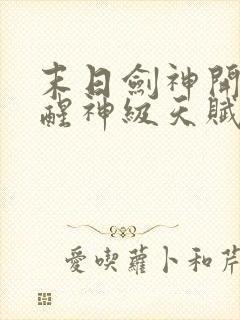 末日劍神開
醒神級天賦
愛喫蘿卜和芹